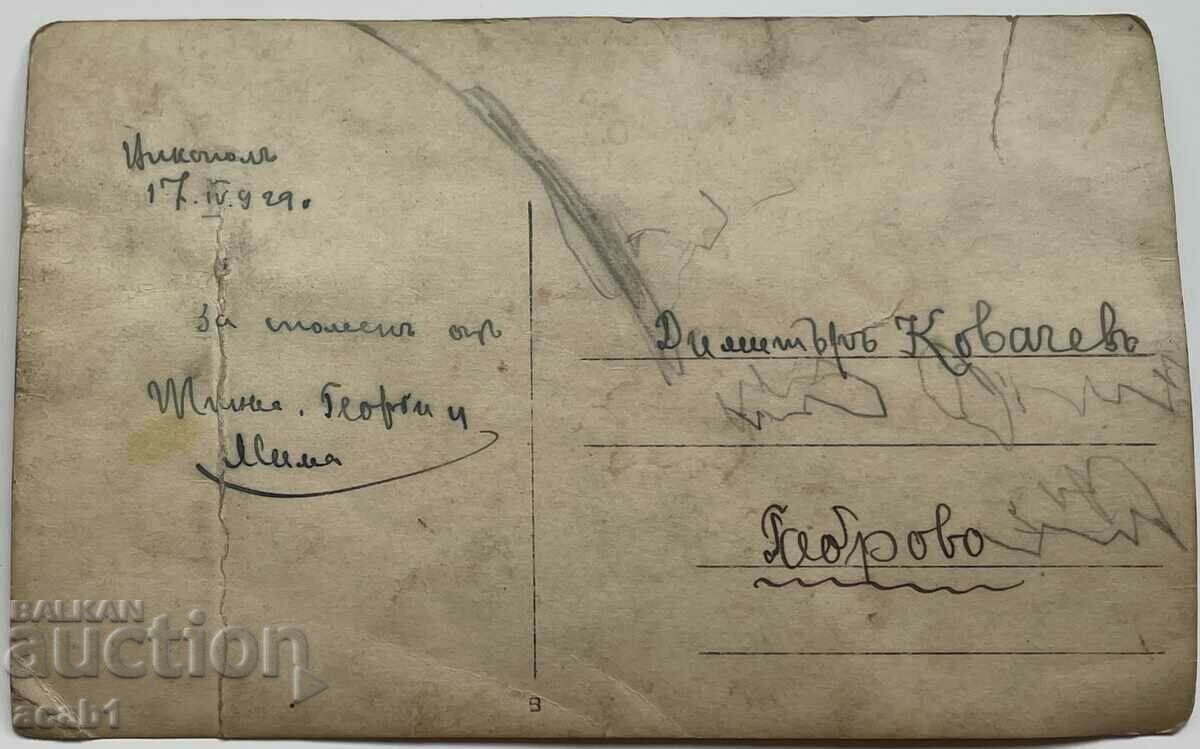 Никополъ
17.IV.929.
За спомен отъ
Георги и
Мима
Димитъръ Ковачевъ
Габрово
B
BALKAN
auction
acab1